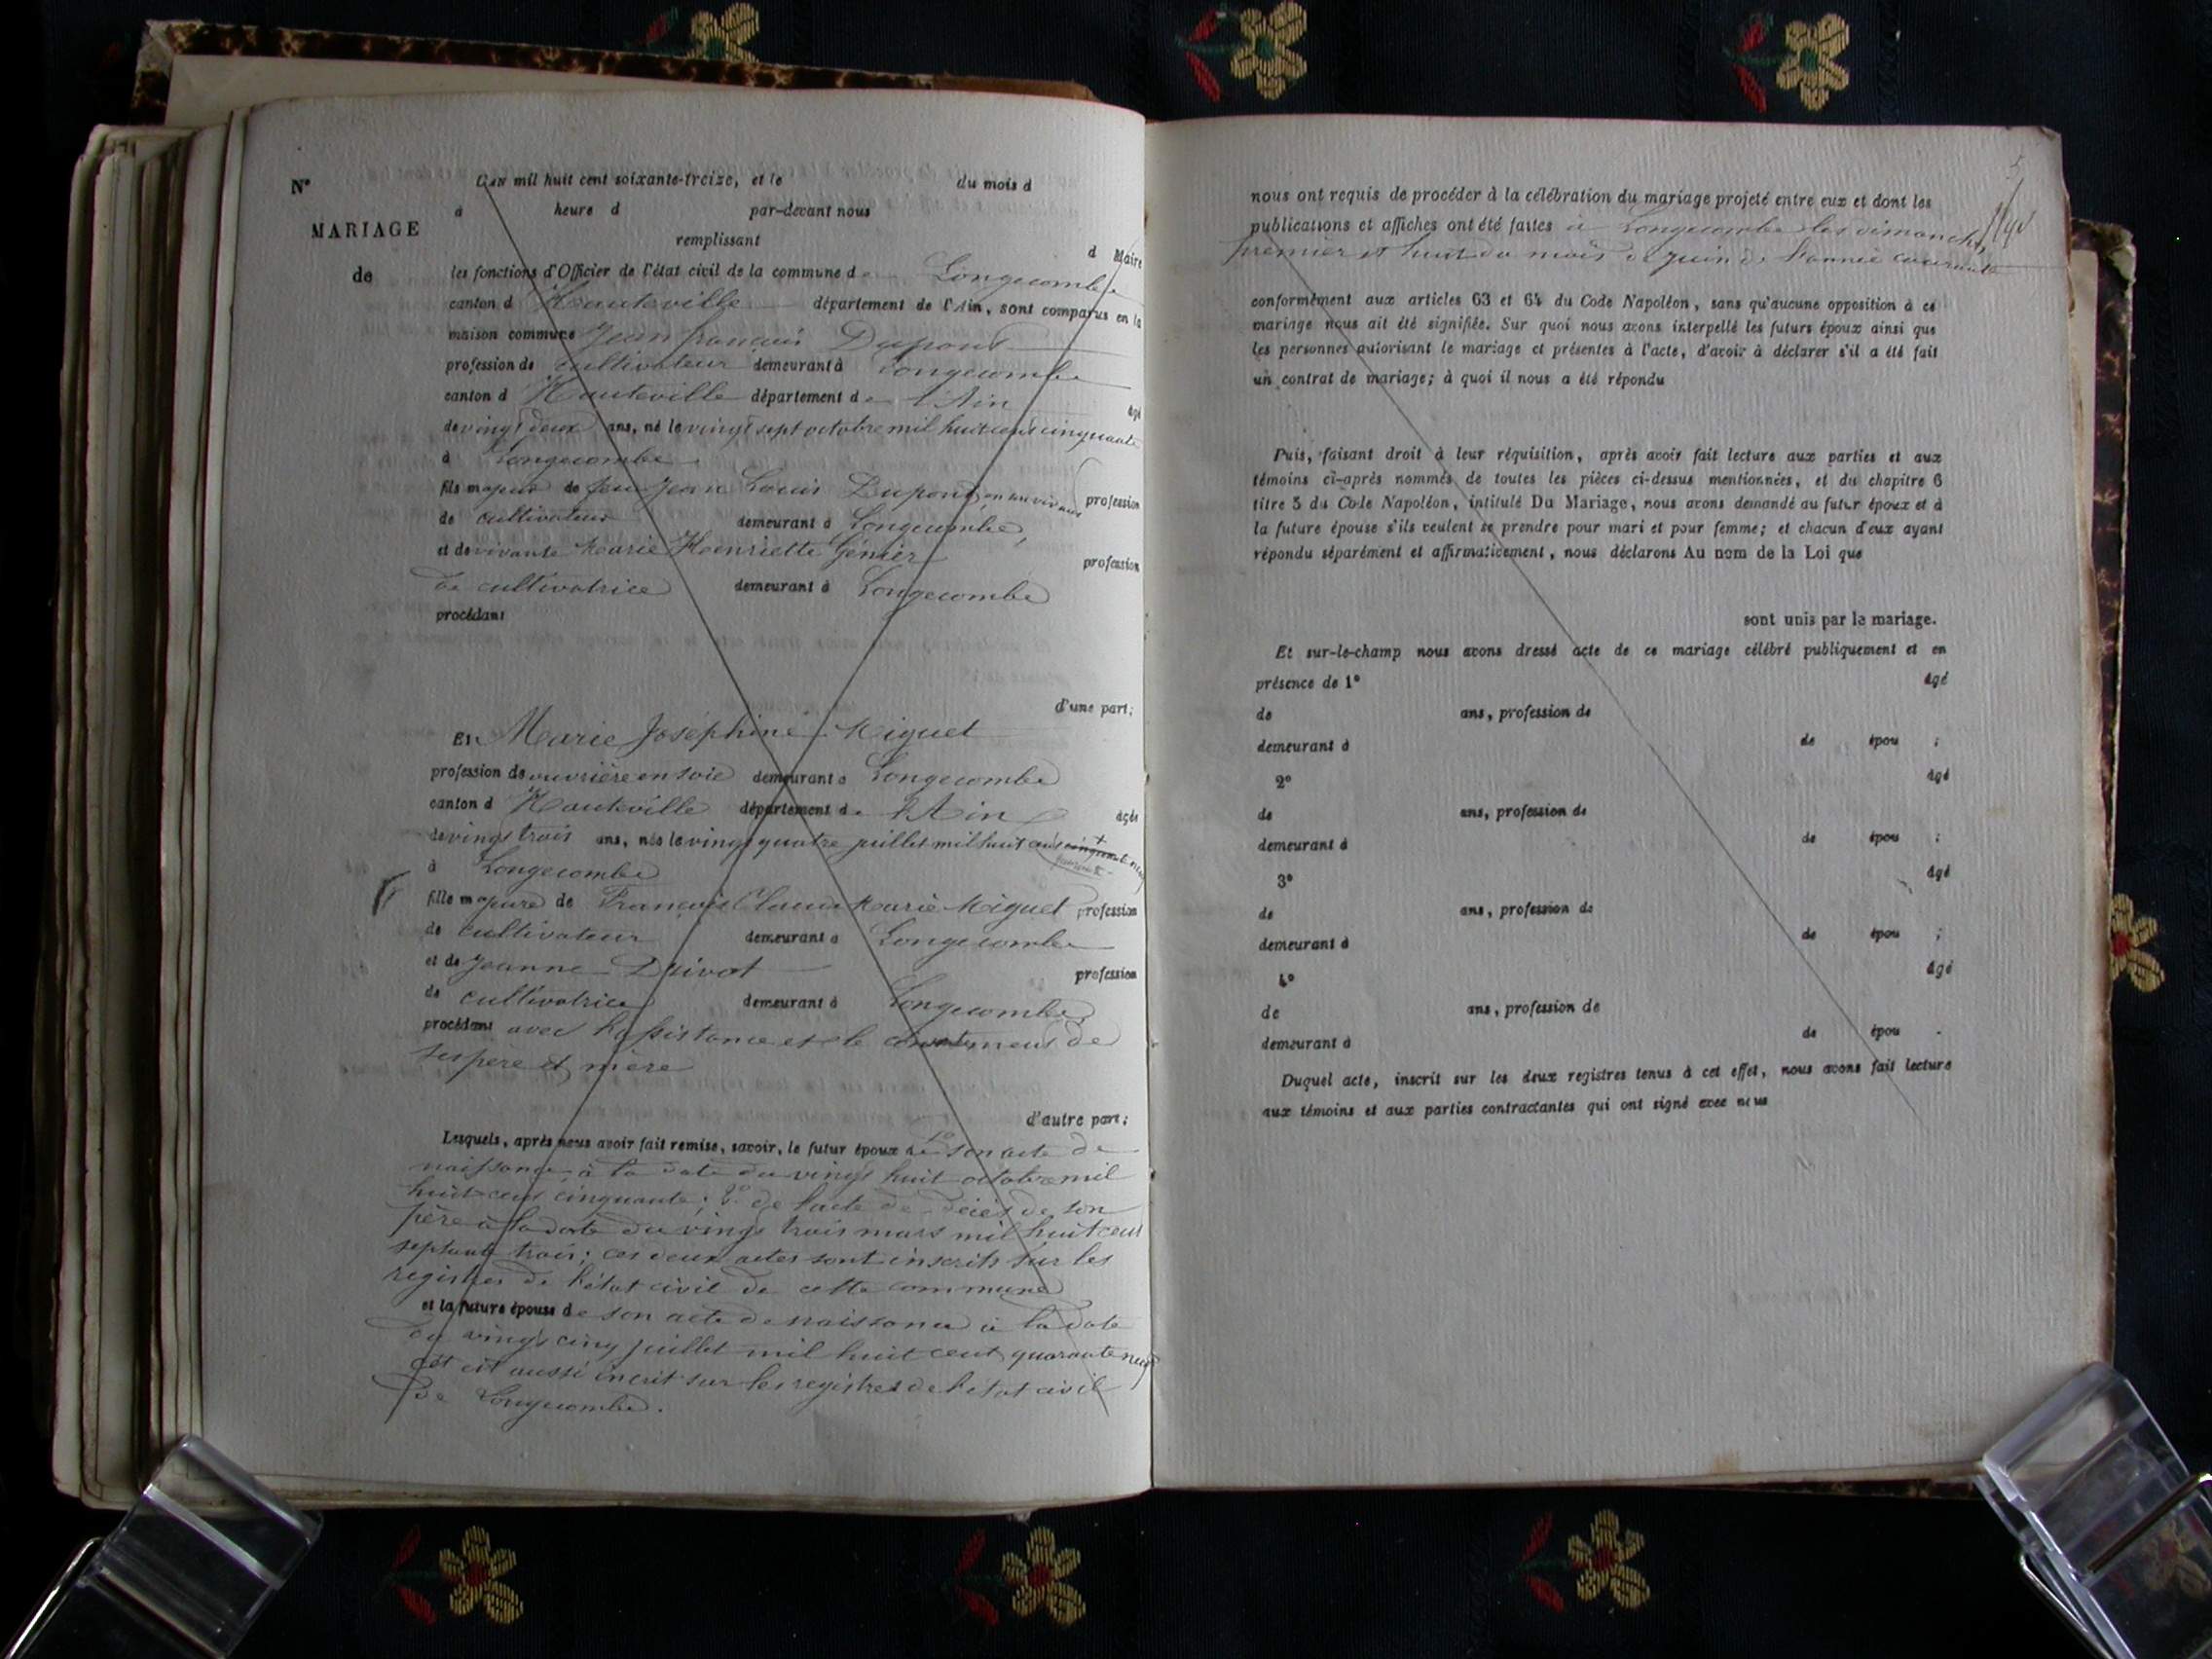 N°
MARIAGE
de
L'AN mil huit cent soixante-treize, et le du mois d
à heure d par-devant nous
remplissant d Maire
les fonctions d'Officier de l'état civil de la commune de Longecombe
canton d'Hauteville département de l'Ain, sont comparus en la
maison commune Jean françois Dupont
profession de cultivateur demeurant à Longecombe
canton d'Hauteville département de l'Ain âgé
de vingt deux ans, né le vingt sept octobre mil huit cent cinquante
à Longecombe
fils majeur de feu Jean Louis Dupont, en son vivant profession
de cultivateur demeurant à Longecombe,
et de vivante Marie Henriette Génier profession
de cultivatrice demeurant à Longecombe
procédant
d'une part;
Et Marie Joséphine Miguet
profession de ouvrière en soie demeurant à Longecombe
canton d'Hauteville département de l'Ain âgée
de vingt trois ans, née le vingt quatre juillet mil huit cent quarante neuf
à Longecombe
fille majeure de François Marie Miguet profession
de cultivateur demeurant à Longecombe
et de Jeanne profession
de cultivatrice demeurant à Longecombe,
procédant avec l'assistance et le de
ses père et mère
d'autre part;
Lesquels, après nous avoir fait remise, savoir, le futur époux de 1° son acte de
naissance, à la date du vingt huit octobre mil
huit cent cinquante; 2° de l'acte de décès de son
père à la date du vingt trois mars mil huit cent
septante trois; ces deux actes sont inscrits sur les
registres de l'état civil de cette commune
et la future épouse de son acte de naissance à la date
du vingt cinq juillet mil huit cent quarante neuf
cet est aussi inscrit sur les registres de l'état civil
de Longecombe.
5
nous ont requis de procéder à la célébration du mariage projeté entre eux et dont les
publications et affiches ont été faites à Longecombe les dimanches
premier et huit du mois de juin de l'année courante
conformément aux articles 63 et 64 du Code Napoléon, sans qu'aucune opposition à ce
mariage nous ait été signifiée. Sur quoi nous avons interpellé les futurs époux ainsi que
les personnes autorisant le mariage et présentes à l'acte, d'avoir à déclarer s'il a été fait
un contrat de mariage; à quoi il nous a été répondu
Puis, faisant droit à leur réquisition, après avoir fait lecture aux parties et aux
témoins ci-après nommés de toutes les pièces ci-dessus mentionnées, et du chapitre 6
titre 5 du Code Napoléon, intitulé Du Mariage, nous avons demandé au futur époux et à
la future épouse s'ils veulent se prendre pour mari et pour femme; et chacun d'eux ayant
répondu séparément et affirmativement, nous déclarons Au nom de la Loi que
sont unis par le mariage.
Et sur-le-champ nous avons dressé acte de ce mariage célébré publiquement et en
présence de 1° âgé
de ans, profession de
demeurant à de épou ;
2° âgé
de ans, profession de
demeurant à de épou ;
3° âgé
de ans, profession de
demeurant à de épou ;
4° âgé
de ans, profession de
demeurant à de épou .
Duquel acte, inscrit sur les deux registres tenus à cet effet, nous avons fait lecture
aux témoins et aux parties contractantes qui ont signé avec nous